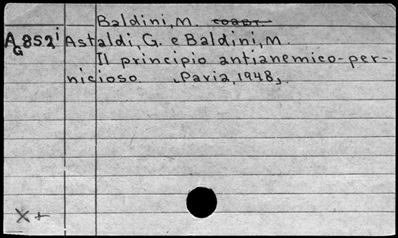 Baldini, M. coaut.
AG852i Astaldi, G. e Baldini, M.
Il principio antianemico-per-
nicioso. Pavia, 1948.
X+